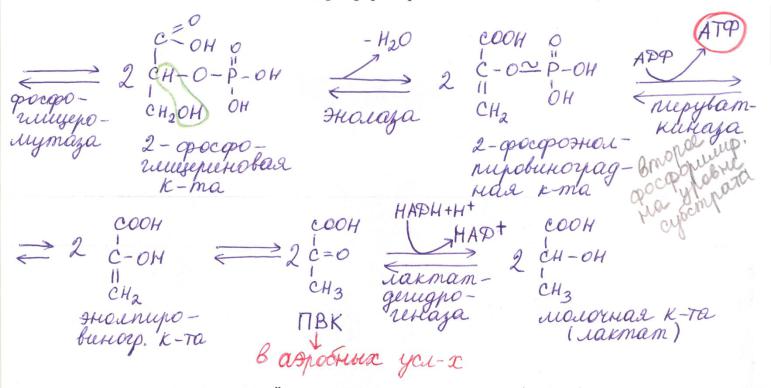 фосфо-
глицеро-
мутаза
2
C=O
OH
CH-O-P-OH
O
OH
CH₂OH
2-фосфо-
глицериновая
к-та
-H₂O
энолаза
2
COOH
C-O≃P-OH
O
OH
CH₂
2-фосфоэнол-
пировиноград-
ная к-та
АДФ
АТФ
пируват-
киназа
второе
фосфорилир.
на уровне
субстрата
2
COOH
C-OH
CH₂
энолпиро-
виногр. к-та
2
COOH
C=O
CH₃
ПВК
в аэробных усл-х
НАДН+Н⁺
НАД⁺
лактат-
дегидро-
геназа
2
COOH
CH-OH
CH₃
молочная к-та
(лактат)